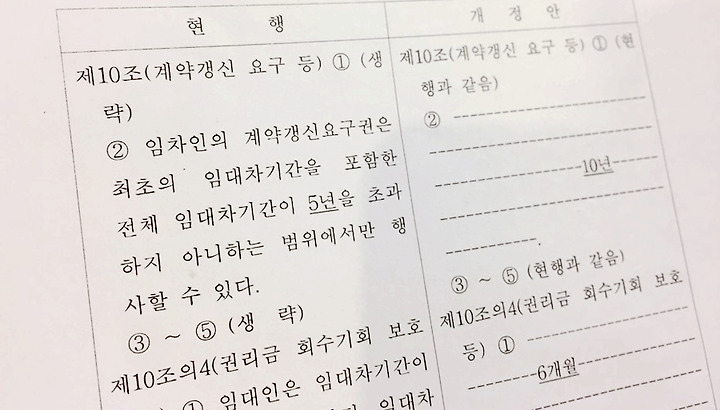 현 행
제10조(계약갱신 요구 등) ① (생
략)
② 임차인의 계약갱신요구권은
최초의 임대차기간을 포함한
전체 임대차기간이 5년을 초과
하지 아니하는 범위에서만 행
사할 수 있다.
③ ~ ⑤ (생 략)
제10조의4(권리금 회수기회 보호
등) ① 임대인은 임대차기간이
임대차
개 정 안
제10조(계약갱신 요구 등) ① (현
행과 같음)
② --------------------
------------------------
----------------10년-----
------------------------
----------.
③ ~ ⑤ (현행과 같음)
제10조의4(권리금 회수기회 보호
등) ① ------------------
--------6개월-----------